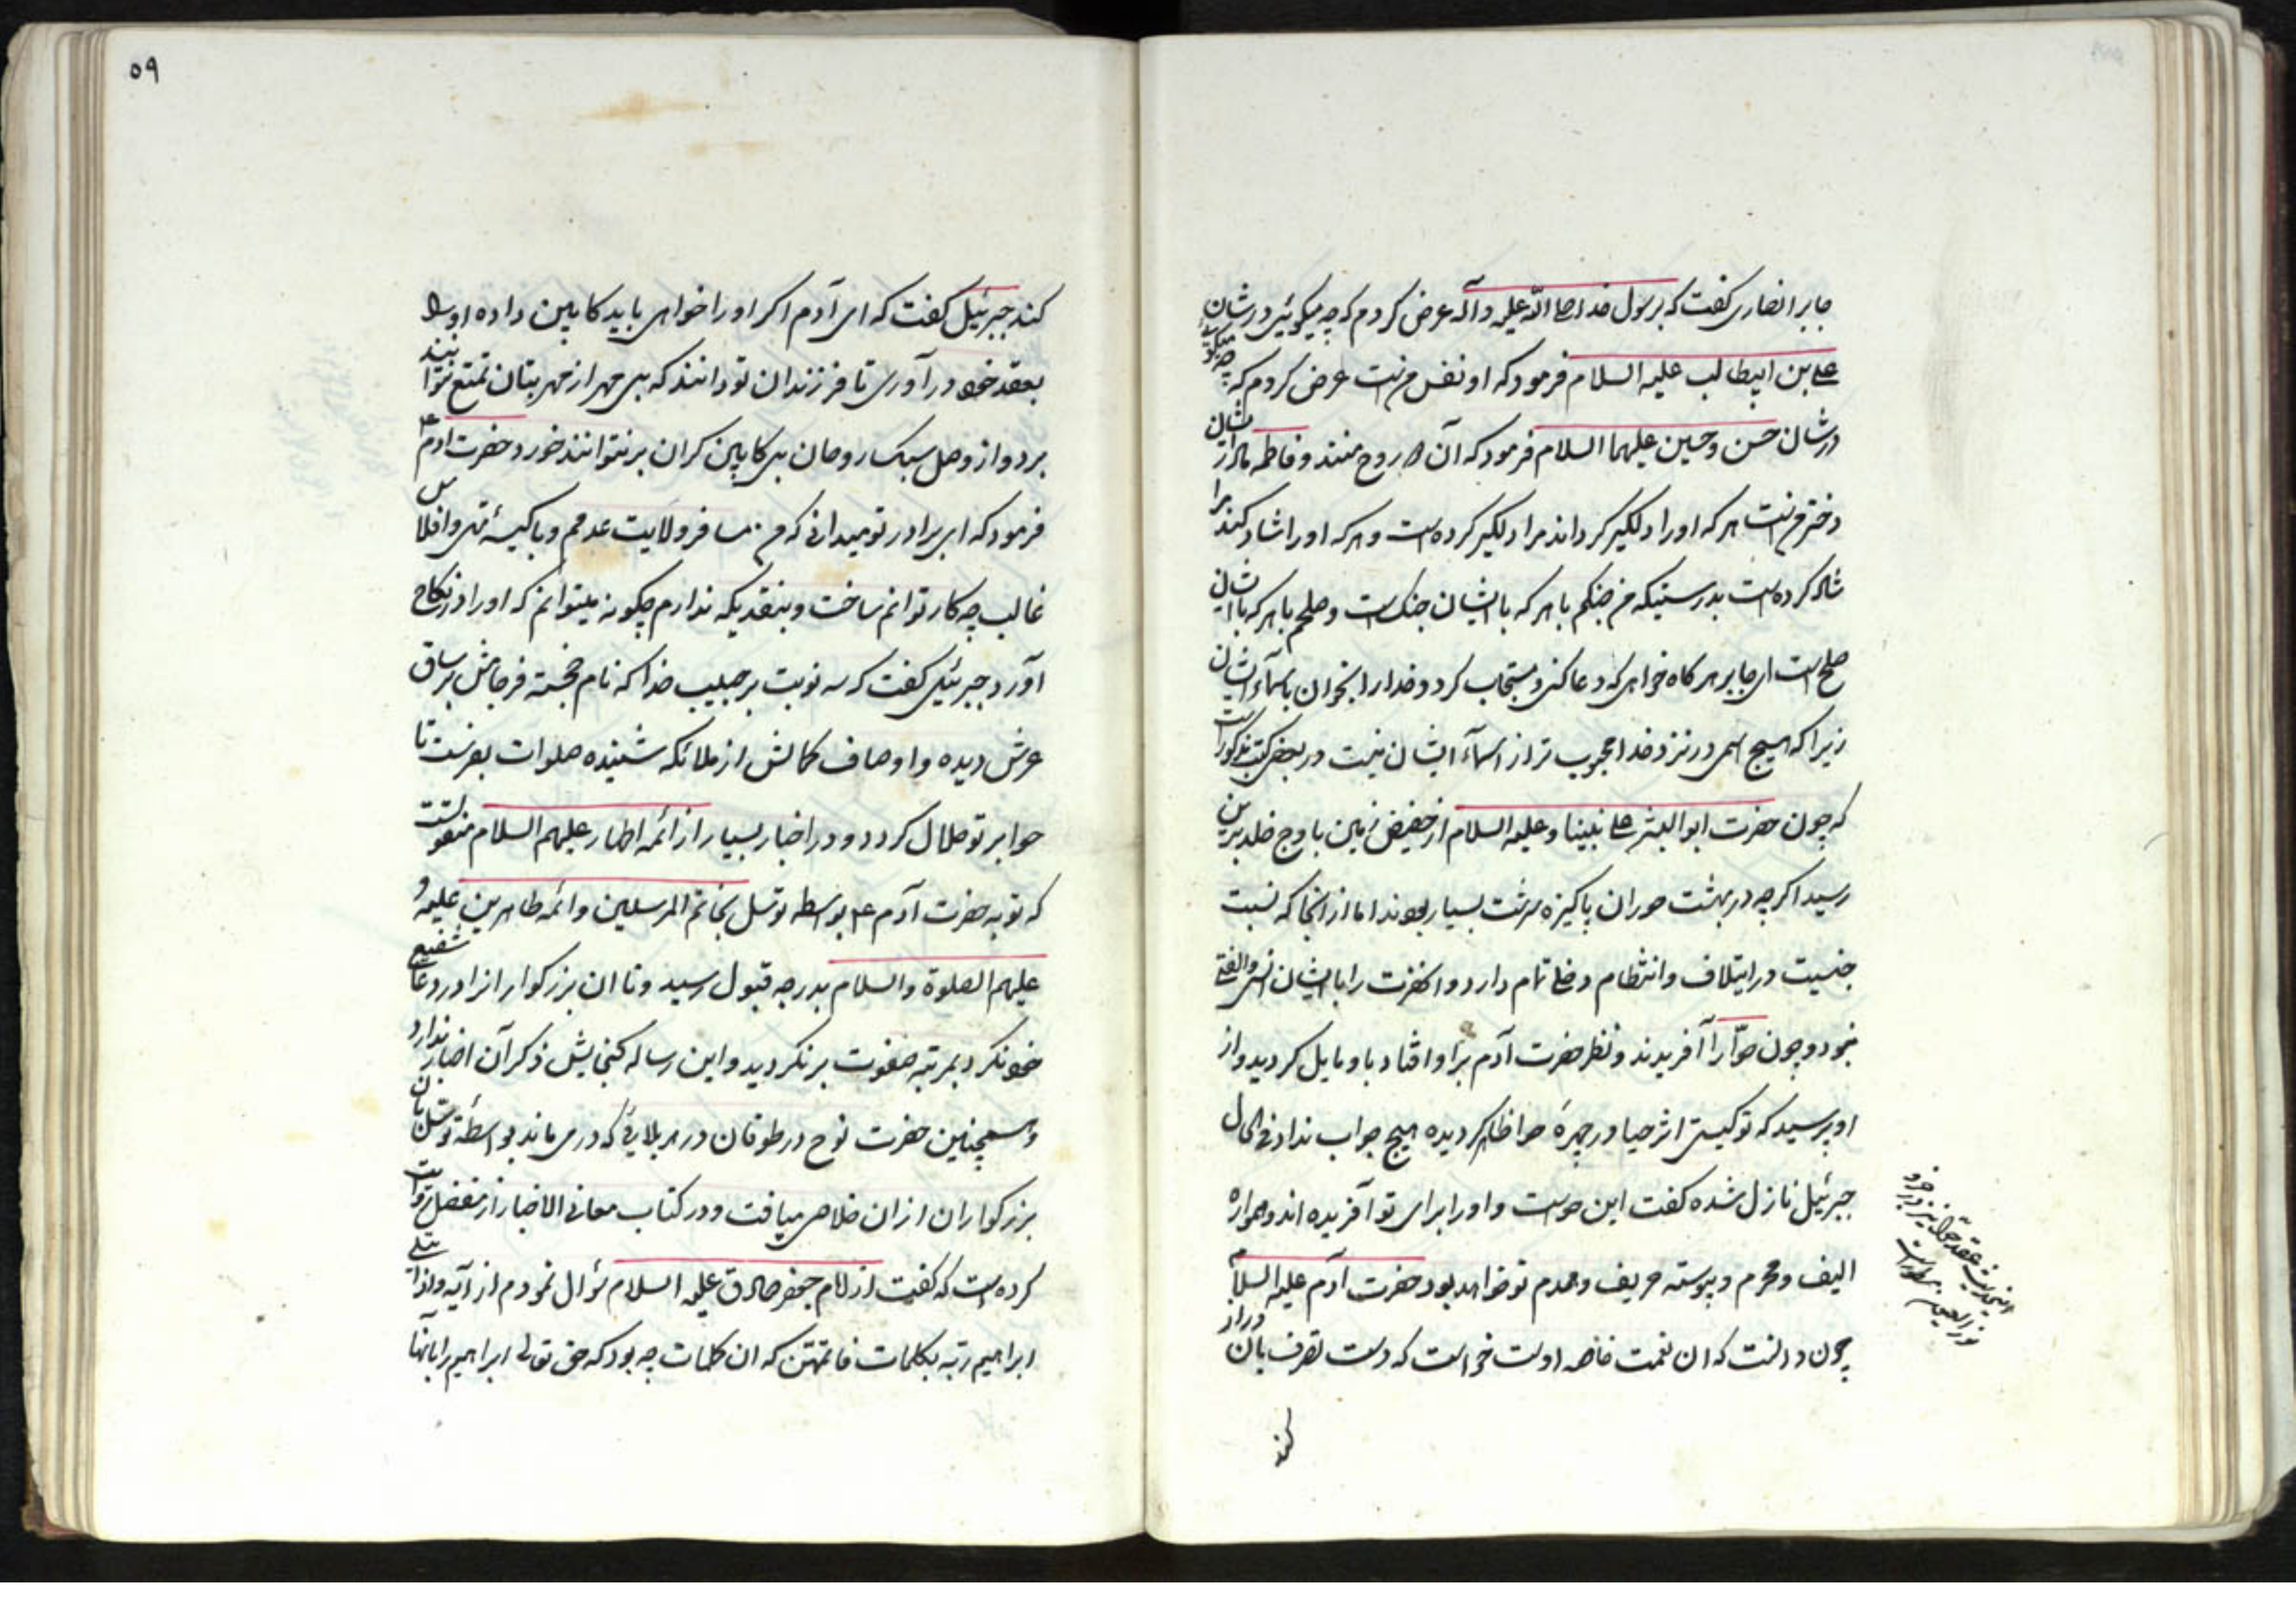 جابر انصاری گفت که برسول خدا صلی الله علیه وآله عرض کردم که چه میکوئی در شان
علی بن ابیطالب علیه السلام فرمود که او نفس منست عرض کردم که چه میکوئی
در شان حسن و حسین علیهما السلام فرمود که آن دو روح منند و فاطمه مادر ایشان
دختر منست هر که او را دلگیر کرداند مرا دلگیر کرده است و هر که او را شاد کند مرا
شاد کرده است بدرستیکه من جنکم با هر که با ایشان جنک است و صلحم با هر که با ایشان
صلح است ای جابر هر کاه خواهی که دعا کنی و مستجاب کردد خدا را بخوان باسماء ایشان
زیرا که هیچ اسمی در نزد خدا محبوب تر از اسماء ایشان نیست در بعضی کتب مذکور است
که چون حضرت ابو البشر علی نبینا وعلیه السلام از حضیض زمین باوج خلد برین
رسید اکرچه در بهشت حوران پاکیزه سرشت بسیار بودند اما از انجا که نسبت
جنسیت در ایتلاف و انتظام دخلی تمام دارد و انحضرت را با ایشان انس والفتی
نبود و چون حوّا را آفریدند و نظر حضرت آدم برا و افتاد باو مایل کردید و از
او پرسید که تو کیستی اثر حیا در چهرهٔ حوا ظاهر کردیده هیچ جواب نداد فی الحال
جبرئیل نازل شده گفت این حواست و او را برای تو آفریده اند و همواره
الیف و محرم و پیوسته حریف و همدم تو خواهد بود حضرت آدم علیه السلام
چون دانست که ان نعمت خاصه اوست خواست که دست تصرف بان دراز
کند
۵۹
کند جبرئیل گفت که ای آدم اکر او را خواهی باید کابین داده او را
بعقد خود در آوری تا فرزندان تو دانند که بی مهر از مهربتان تمتع نتوانند
برد و از وصل سبک روحان بی کابین کران بر نتوانند خورد حضرت ادم ع
فرمود که ای برادر تو میدانی که من مسافر ولایت عدمم و با کیسهٔ تهی و افلاس
غالب چه کار توانم ساخت و بنقدیکه ندارم چکونه میتوانم که او را در نکاح
آورد جبرئیل گفت که سه نوبت بر حبیب خدا که نام خجسته فرجامش بر ساق
عرش دیده و اوصاف کمالش از ملائکه شنیده صلوات بفرست تا
حوا بر تو حلال کردد و در اخبار بسیار از ائمه اطهار علیهم السلام منقولست
که توبه حضرت آدم ع بواسطه توسل بخاتم المرسلین و ائمه طاهرین علیه و
علیهم الصلوة والسلام بدرجه قبول رسید و تا ان بزرکوارانرا در دعا شفیع
خود نکرد بمرتبه صفوت برنکردید و این رساله کنجایش ذکر آن اخبار ندارد
و همچنین حضرت نوح در طوفان در هر بلایی که در می ماند بواسطهٔ توسل بان
بزرکواران از ان خلاصی میافت و در کتاب معانی الاخبار از مفضل روایت
کرده است که گفت از امام جعفر صادق علیه السلام سؤال نمودم از آیه واذ ابتلی
ابراهیم ربه بکلمات فاتمهن که ان کلمات چه بود که حق تعالی ابراهیم را بانها